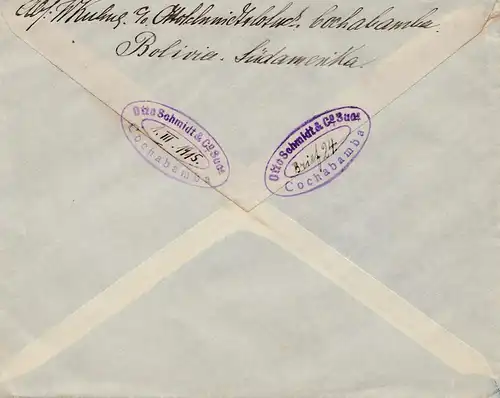 Abs: c/o Otto Schmidt & Co Cochabamba.
Bolivia. Südamerika.
Otto Schmidt & Co Sucs
1. III. 1915.
Cochabamba
Otto Schmidt & Co Sucs
Brief 24
Cochabamba